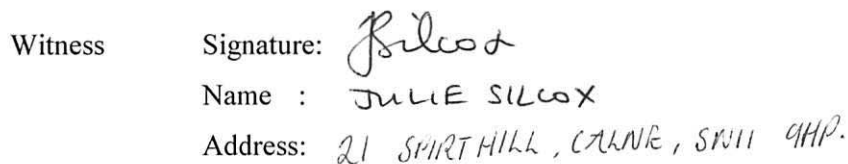 Witness Signature: JSilcox
Name : JULIE SILCOX
Address: 21 SPIRTHILL, CALNE, SN11 9HP.